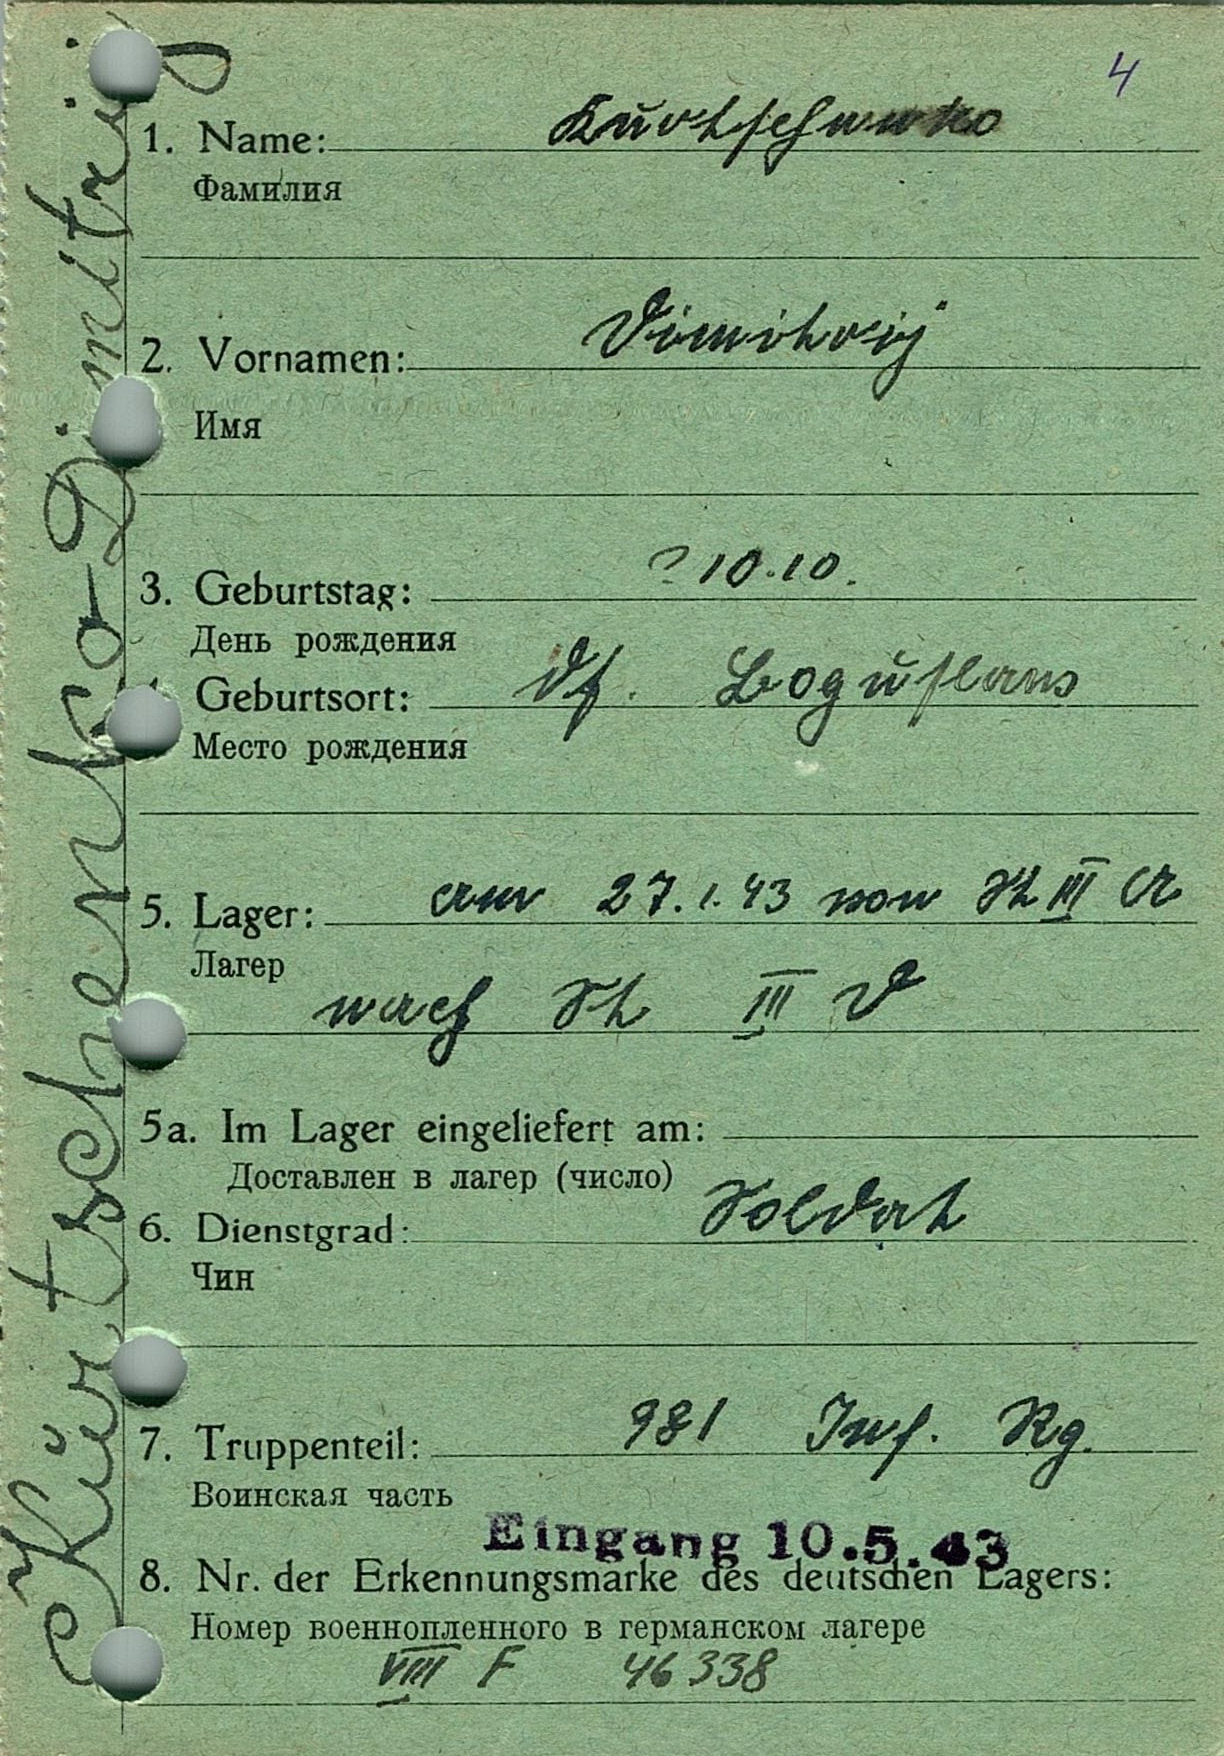 4
1. Name: Kurtschenko
Фамилия
2. Vornamen: Dimitrij
Имя
3. Geburtstag: ? 10.10.
День рождения
4. Geburtsort: Df. Boguslano
Место рождения
5. Lager: am 27.1.43 von St III A
Лагер
nach St III D
5a. Im Lager eingeliefert am:
Доставлен в лагер (число)
6. Dienstgrad: Soldat
Чин
7. Truppenteil: 981 Inf. Rg.
Воинская часть
Eingang 10.5.43
8. Nr. der Erkennungsmarke des deutschen Lagers:
Номер военнопленного в германском лагере
VIII F 46338
Kurtschenko Dimitrij